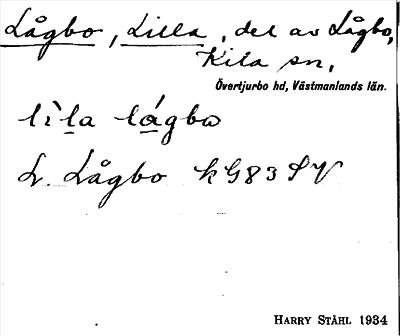 Lågbo, Lilla, del av Lågbo,
Kila sn,
Övertjurbo hd, Västmanlands län.
lìla lágbω
L. Lågbo kG83SV
HARRY STÅHL 1934